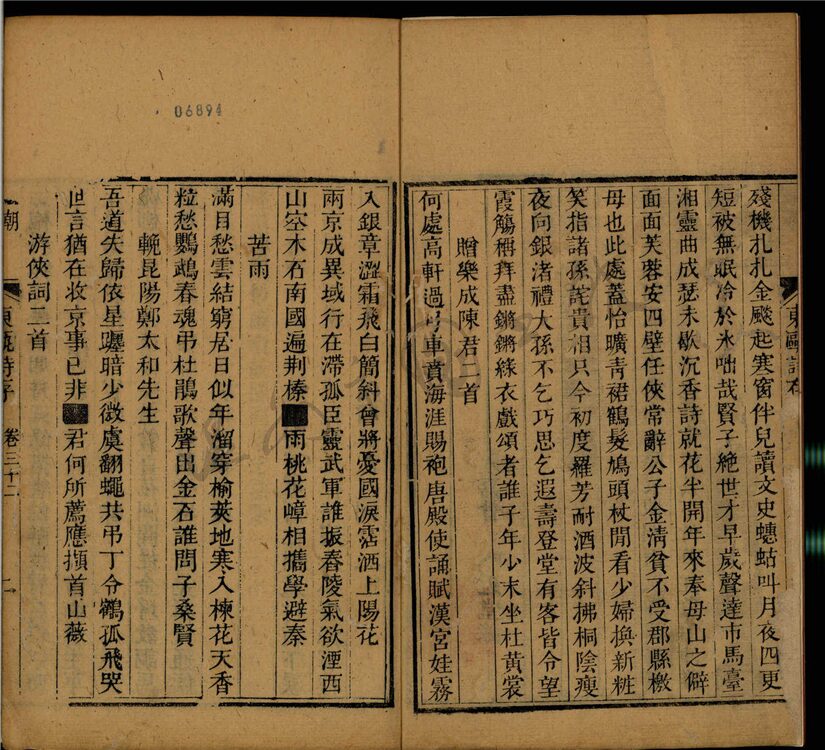 06894
東甌詩存
殘機扎扎金飈起寒窗伴兒讀文史蟪蛄叫月夜四更
短被無眠冷於氷咄哉賢子絶世才早歲聲達市馬臺
湘靈曲成瑟未歇沉香詩就花半開年來奉母山之僻
面面芙蓉安四壁任俠常辭公子金淸貧不受郡縣檄
母也此處蓋怡曠青裙鶴髮鳩頭杖閒看少婦換新粧
笑指諸孫詫貴相只今初度羅芳耐酒波斜拂桐陰瘦
夜向銀渚禮大孫不乞巧思乞遐壽登堂有客皆令望
霞觴稱拜盡鏘鏘綵衣戲頌者誰子年少末坐杜黃裳
贈樂成陳君二首
何處高軒過弓車賁海涯賜袍唐殿使誦賦漢宮娃霧
入銀章澀霜飛白簡斜曾將憂國淚霑洒上陽花
兩京成異域行在滯孤臣靈武軍誰振舂陵氣欲湮西
山空木石南國遍荆榛雨桃花嶂相攜學避秦
苦雨
滿目愁雲結窮居日似年溜穿榆莢地寒入楝花天香
粒愁鸚鵡春魂弔杜鵑歌聲出金石誰問子桑賢
輓昆陽鄭太和先生
吾道失歸依星躔暗少微虞翻蠅共弔丁令鶴孤飛哭
世言猶在妝京事已非君何所薦應擷首山薇
游俠詞二首
朝
東甌詩存
卷三十二